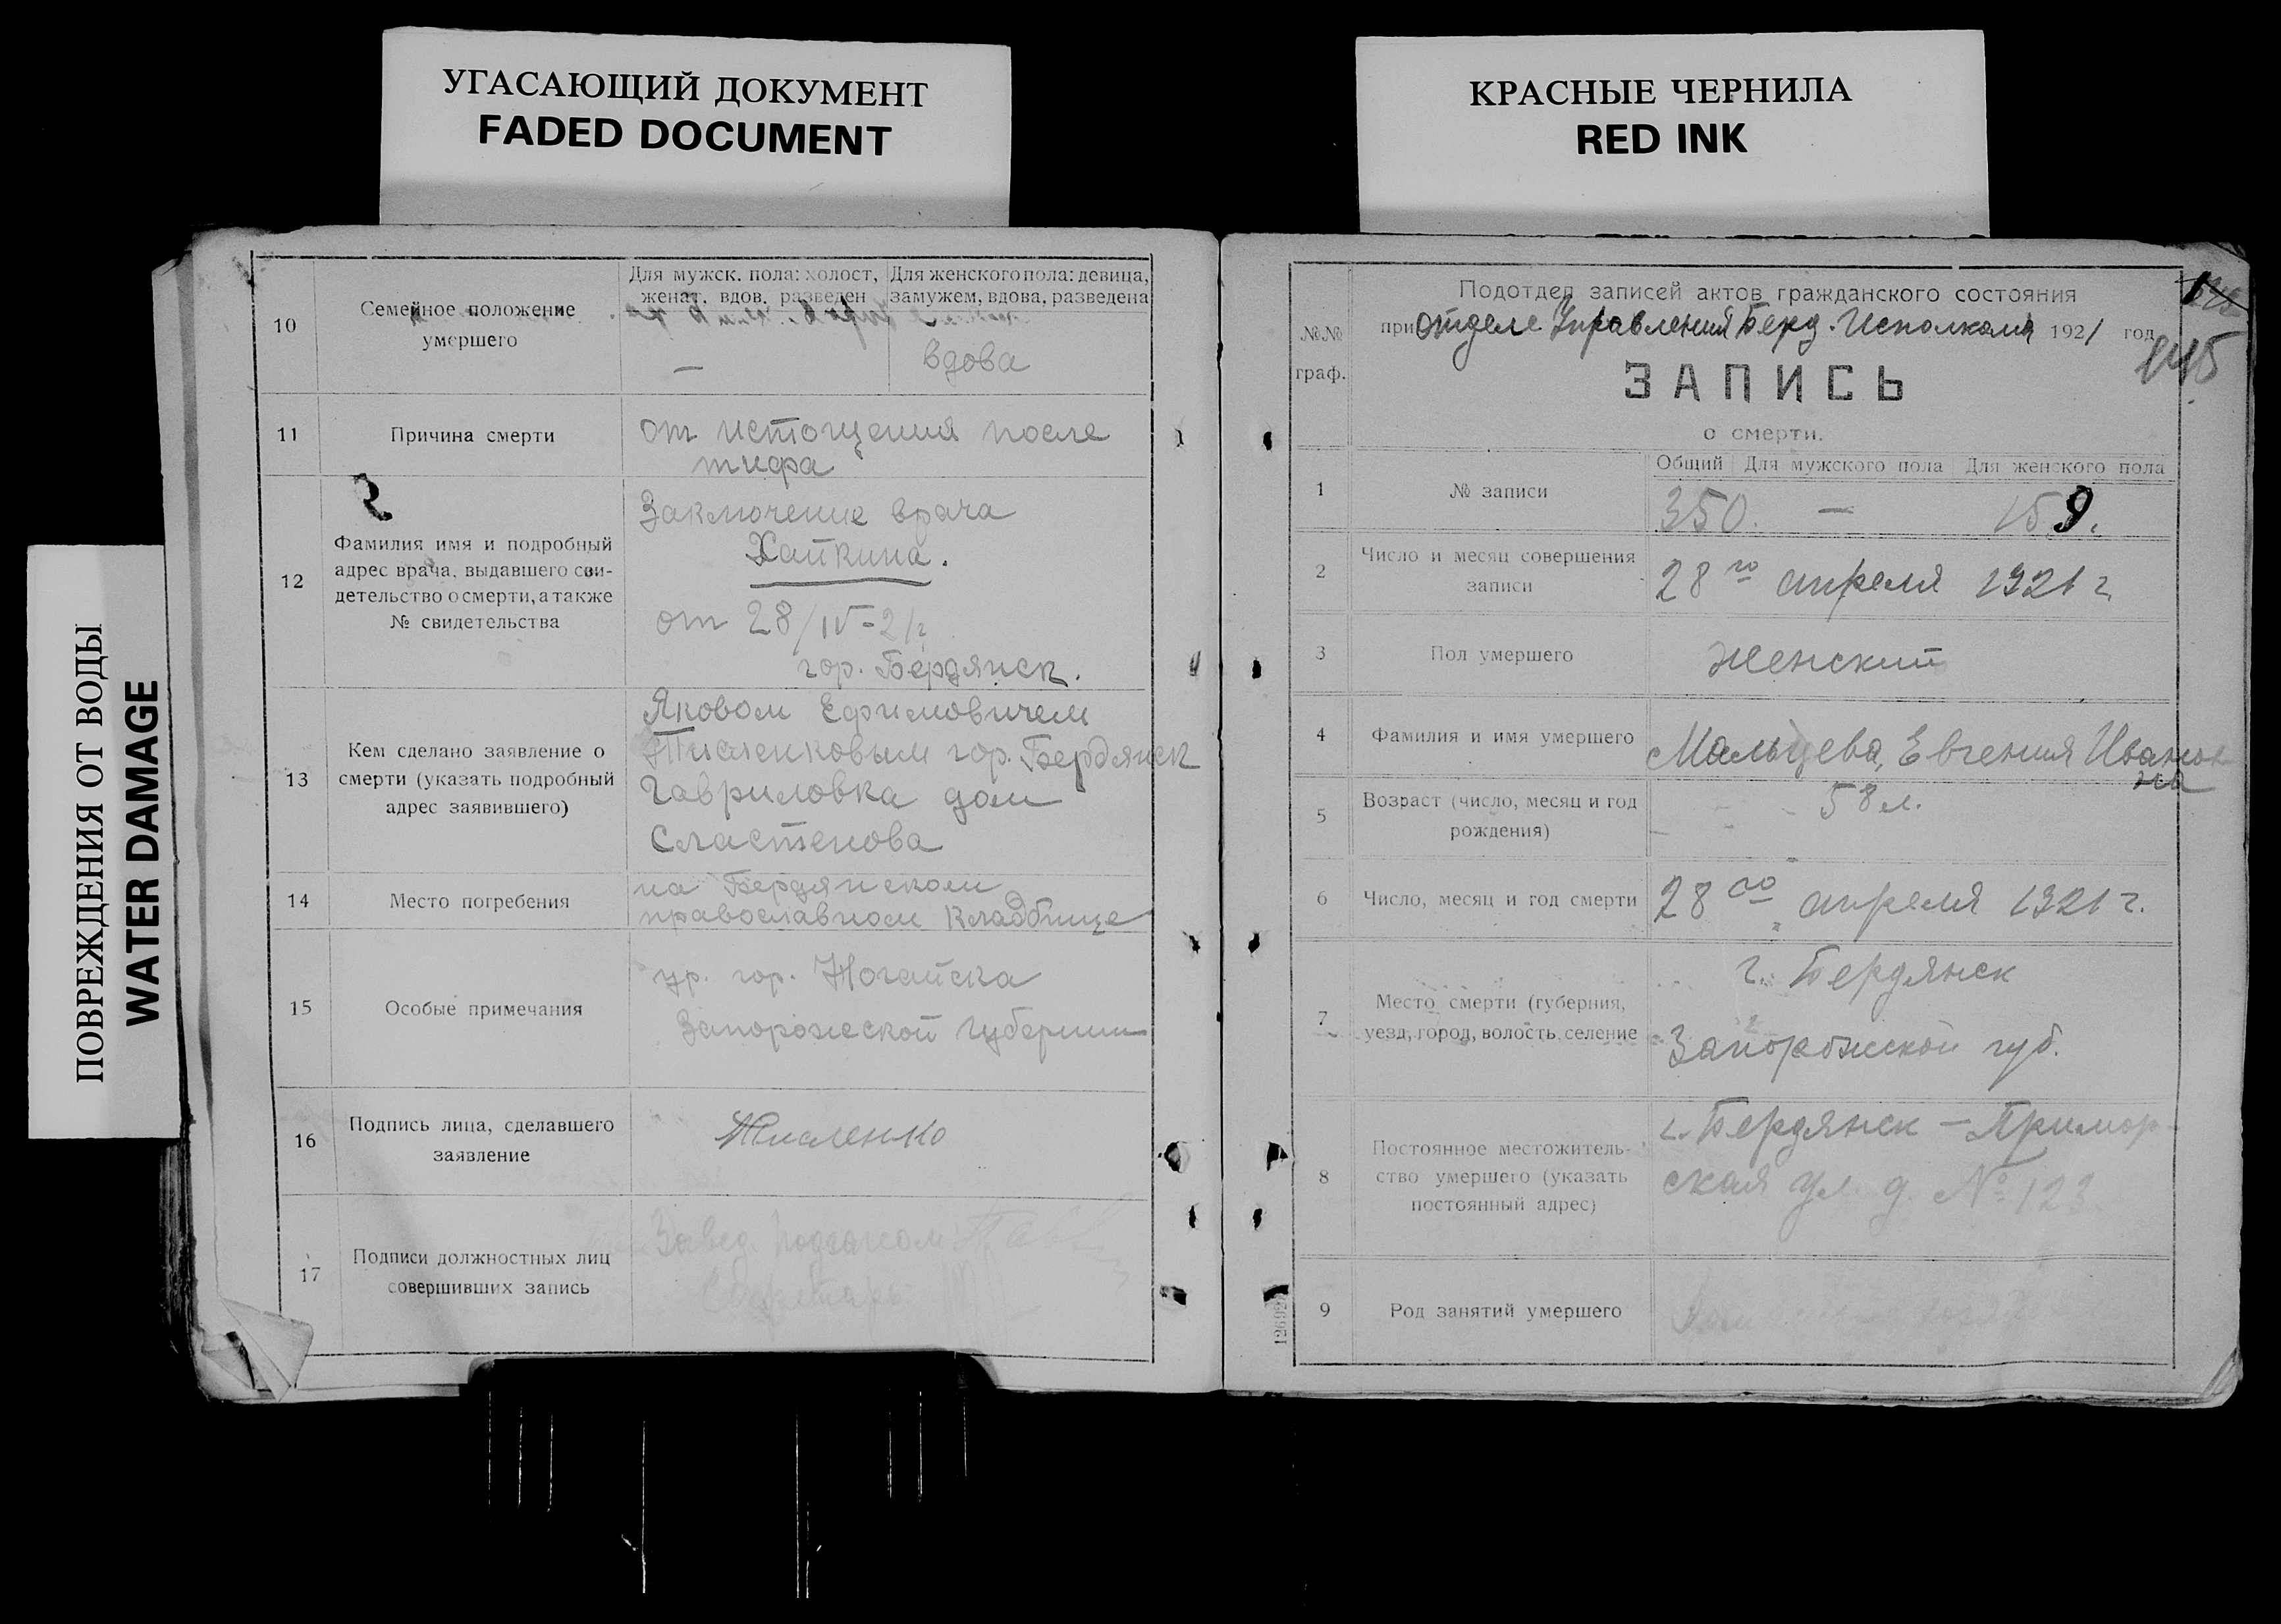 УГАСАЮЩИЙ ДОКУМЕНТ
FADED DOCUMENT
КРАСНЫЕ ЧЕРНИЛА
RED INK
ПОВРЕЖДЕНИЯ ОТ ВОДЫ
WATER DAMAGE
10
Семейное положение
умершего
Для мужск. пола: холост,
женат, вдов. разведен
Для женского пола: девица,
замужем, вдова, разведена
—
вдова
11
Причина смерти
от истощения после
тифа
12
Фамилия имя и подробный
адрес врача, выдавшего сви-
детельство о смерти, а также
№ свидетельства
Заключение врача
Хайкина.
от 28/IV-21г
гор. Бердянск.
13
Кем сделано заявление о
смерти (указать подробный
адрес заявившего)
Яковом Ефимовичем
гор. Бердянск
Гавриловка дом
Сластенова
14
Место погребения
на Бердянском
православном кладбище
15
Особые примечания
ур. гор. Ногайска
Запорожской губернии
16
Подпись лица, сделавшего
заявление
17
Подписи должностных лиц
совершивших запись
Завед.
Секретарь
№№
граф.
Подотдел записей актов гражданского состояния
при Отделе Управления Берд. Исполкома 1921 год
245
ЗАПИСЬ
о смерти.
1
№ записи
Общий Для мужского пола Для женского пола
350. — 159.
2
Число и месяц совершения
записи
28го апреля 1921 г.
3
Пол умершего
женский
4
Фамилия и имя умершего
Мальцева, Евгения Иванов
на
5
Возраст (число, месяц и год
рождения)
58 л.
6
Число, месяц и год смерти
28го апреля 1921 г.
7
Место смерти (губерния,
уезд, город, волость, селение
г. Бердянск
Запорожской губ.
8
Постоянное местожитель-
ство умершего (указать
постоянный адрес)
г. Бердянск — Примор-
ская ул. д. № 123.
9
Род занятий умершего